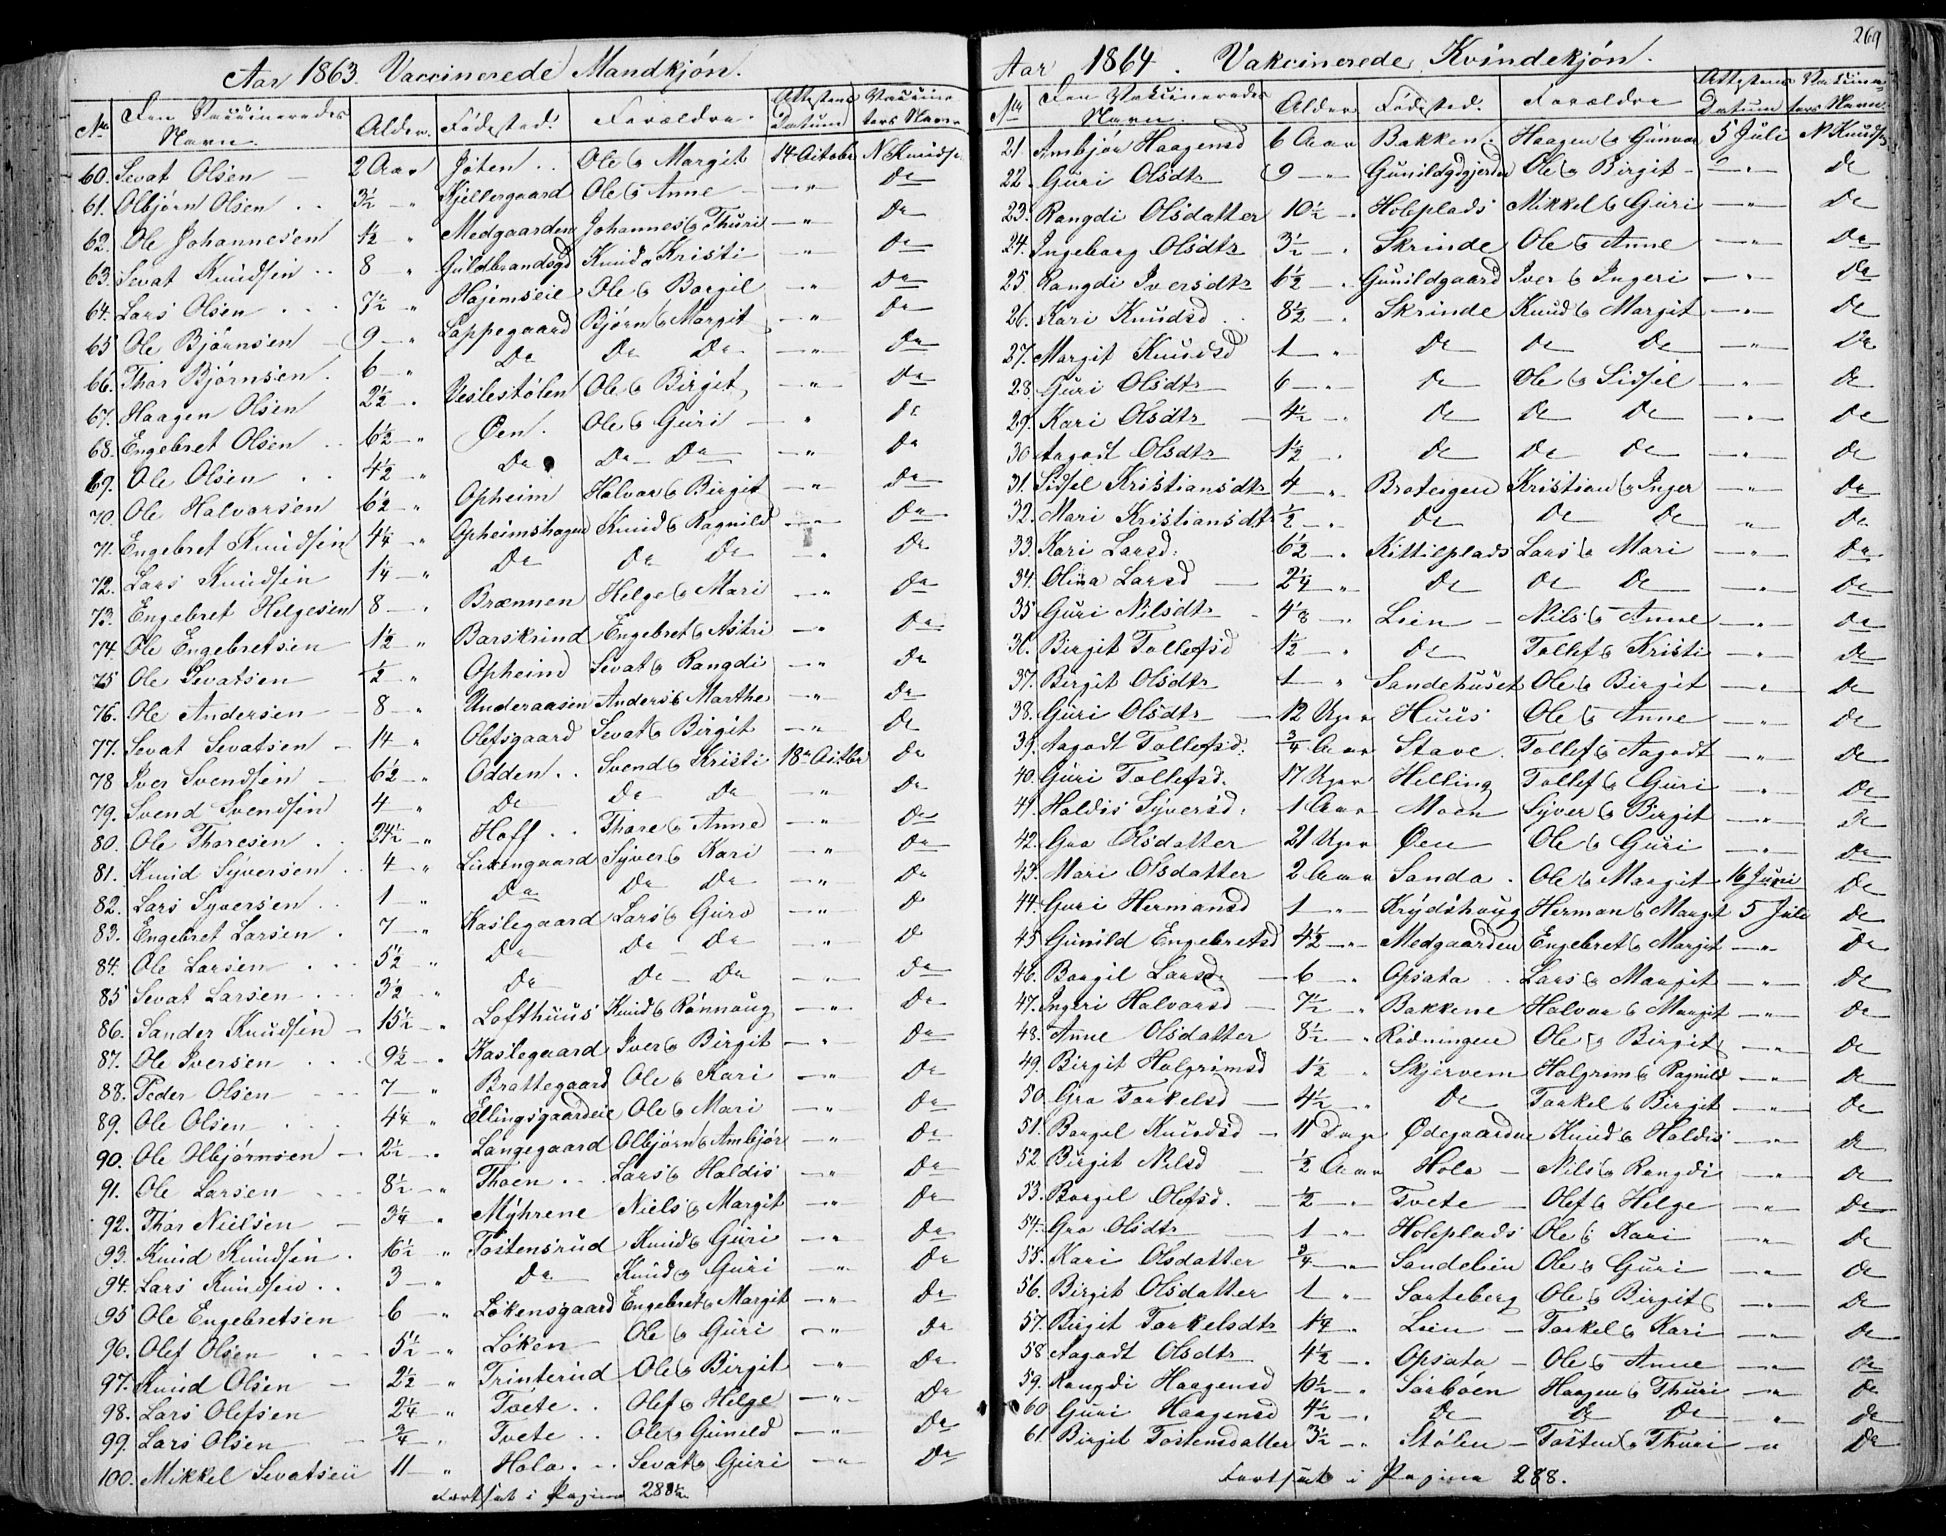 Aar 1863. Vaccinerede Mandkjøn.
No. Den Vaccineredes Navn. Alder. Fødested. Forældre. Attestens Datum Vaccinators Navn
60. Sevat Olsen 2 Aar Joten Ole & Margit 14 Octobr N Knudsen
61. Olbjørn Olsen 3½ " Kjellergaard Ole & Anne " Do
62. Ole Johannesen ½ " Medgaarden Johannes & Thuri " Do
63. Sevat Knudsen 8 " Guldbrandsgd Knud & Kristi " Do
64. Lars Olsen 7½ " Hajemseie Ole & Borgil " Do
65 Ole Bjørnsen 9 " Loppegaard Bjørn & Margit " Do
66. Thor Bjørnsen 6 " Do Do Do " Do
67. Haagen Olsen 2½ " Veslestølen Ole & Birgit " Do
68. Engebret Olsen 6½ " Øen Ole & Guri " Do
69. Ole Olsen 4½ " Do Do Do " Do
70. Ole Halvorsen 6½ " Opheim Halvor & Birgit " Do
71. Engebret Knudsen 4¼ " Opheimshagen Knud & Ragnild " Do
72. Lars Knudsen 1¼ " Do Do Do " Do
73. Engebret Helgesen 8 " Brænnen Helge & Mari " Do
74. Ole Engebretsen 1½ " Barskrind Engebret & Astri " Do
75 Ole Sevatsen ½ " Opheim Sevat & Rangdi " Do
76. Ole Andersen 8 " Underaasen Anders & Marthe " Do
77. Sevat Sevatsen 14 " Olefsgaard Sevat & Birgit " Do
78 Iver Svendsen 6½ " Odden Svend & Kristi 18 Octbr Do
79. Svend Svendsen 4 " Do Do Do " Do
80. Ole Thoresen 24½ " Hoff Thore & Anne " Do
81. Knud Syversen 4 " Syver & Kari " Do
82. Lars Syversen 1 " Do Do Do " Do
83. Engebret Larsen 7 " Kaslegaard Lars & Guro " Do
84. Ole Larsen 5½ " Do Do Do " Do
85 Sevat Larsen 3½ " Do Do Do " Do
86. Sander Knudsen 15½ " Lofthuus Knud & Rønnoug " Do
87. Ole Iversen 9½ " Kaslegaard Iver & Birgit " Do
88. Peder Olsen 7 " Brattegaard Ole & Kari " Do
89. Ole Olsen 4¼ " Ellingsgaardeie Ole & Mari " Do
90. Ole Olbjørnsen 2½ " Langegaard Olbjørn & Ambjør " Do
91. Ole Larsen 8½ " Thoen Lars & Haldis " Do
92. Thor Nielsen 3¼ " Myhrene Niels & Margit " Do
93. Knud Knudsen 16½ " Tostensrud Knud & Guri " Do
94. Lars Knudsen 3 " Do Knud & Guri " Do
95 Ole Engebretsen 6 " Løkensgaard Engebret & Margit " Do
96. Olef Olsen 5½ " Løken Ole & Guri " Do
97. Knud Olsen 2½ " Trinterud Ole & Birgit " Do
98. Lars Olefsen 2¼ " Tvete Olef & Helge " Do
99. Lars Olsen ¾ " Tvete Ole & Gunild " Do
100. Mikkel Sevatsen 11 " Hola Sevat & Guri " Do
Fortsat i Pagina 288½
269
Aar 1864. Vakcinerede Kvindekjøn.
No Den Vakcineredes Navn. Alder Fødested. Forældre Attestens Datum Vakcinators Navn
21. Ambjør Haagensd 6 Aar Bakken Haagen & Gunvor 5 Juli N Knudsen
22. Guri Olsdtr 9 " Gunildgdgjerdet Ole & Birgit " Do
23. Rangdi Olsdatter 10½ " Holeplads Mikkel & Guri " Do
24. Ingeborg Olsdtr 3½ " Skrinde Ole & Anne " Do
25 Rangdi Iversdtr 6½ " Gunildgaard Iver & Ingeri " Do
26. Kari Knudsd 8½ " Skrinde Knud & Margit " Do
27. Margit Knudsd 1 " Do Do Do " Do
28. Guri Olsdtr 6 " Do Ole & Sidsel " Do
29. Kari Olsdtr 4½ " Do Do Do " Do
30 Aagodt Olsdtr 1½ " Do Do Do " Do
31. Sidsel Kristiansdtr 4 " Brotergen Kristian & Inger " Do
32. Mari Kristiansdtr ½ " Do Do Do " Do
33. Kari Larsd. 6½ " Kittilplads Lars & Mari " Do
34. Olina Larsd 2¼ " Do Do Do " Do
35 Guri Nilsdtr 4⅛ " Lien Nils & Anne " Do
36. Birgit Tollefsd 1½ " Do Tollef & Kristi " Do
37. Birgit Olsdtr 1 " Sandehuset Ole & Birgit " Do
38. Guri Olsdtr 12 Uger Huus Ole & Anne " Do
39. Aagodt Tollefsd. ¾ Aar Stave Tollef & Aagodt " Do
40. Guri Tollefsd. 17 Uger Helling Tollef & Guri " Do
41. Haldis Syversd. 1 Aar Moen Syver & Birgit " Do
42. Gro Olsdatter 21 Uger Øen Ole & Guri " Do
43. Mari Olsdatter 2 Aar Sanda Ole & Margit 16 Juni Do
44. Guri Hermansd 1 " Krydshoug Herman & Margit 5 Juli Do
45 Gunild Engebretsd 4½ " Medgaarden Engebret & Margit " Do
46. Borgil Larsd 6 " Opsata Lars & Margit " Do
47. Ingeri Halvorsd 7½ " Bakkene Halvor & Margit " Do
48. Anne Olsdatter 8½ " Rødningen Ole & Birgit " Do
49. Birgit Halgrimsd 1½ " Skjervem Halgrim & Ragnild " Do
50. Gro Torkelsd 4½ " Do Torkel & Birgit " Do
51. Borgel Knudsd 11 Dage Ødegaarden Knud & Haldis " Do
52 Birgit Nilsd ½ Aar Hola Nils & Rangdi " Do
53. Borgil Olefsd. ½ " Tvete Olef & Helge " Do
54. Gro Olsdtr 1 " Holeplads Ole & Kari " Do
55. Kari Olsdatter ¾ " Sandelien Ole & Guri " Do
56. Birgit Olsdatter 1 " Sorteberg Ole & Birgit " Do
57. Birgit Torkelsdtr 1¼ " Lien Torkel & Kari " Do
58 Aagodt Olsdtr 4½ " Opsata Ole & Anne " Do
59. Rangdi Haagensd 10½ " Sørbøen Haagen & Thuri " Do
60 Guri Haagensd 4½ " Do Do Do " Do
61. Birgit Tostensdatter 3½ " Stølen Tosten & Thuri " Do
Fortsat i Pagina 288.